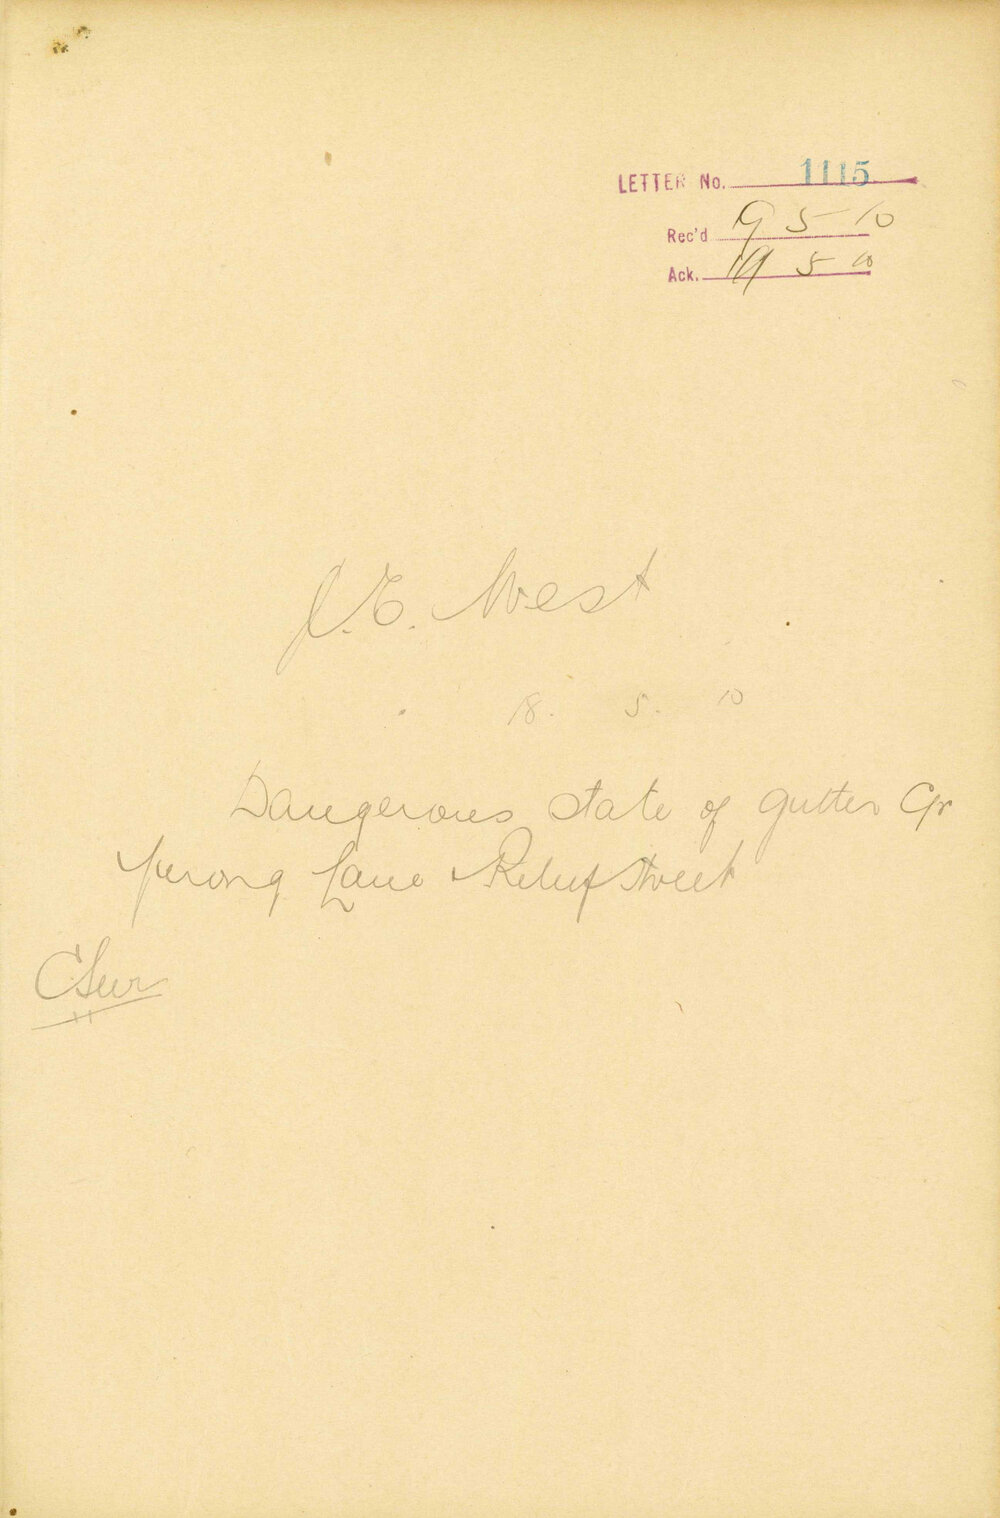 LETTER No. 1115
Rec'd 19 5 10
Ack. 19 5 10
J. E. West
18. 5. 10
Dangerous state of gutter Cr
Lane & Relief Street